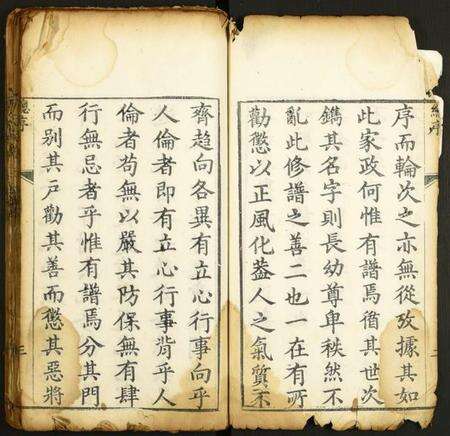 總序
序而輪次之亦無從攷據其如
此家政何惟有譜焉循其世次
鐫其名字則長幼尊卑秩然不
亂此修譜之善二也一在有所
勸懲以正風化蓋人之氣質不
齊趨向各異有立心行事向乎
人倫者即有立心行事背乎人
倫者苟無以嚴其防保無有肆
行無忌者乎惟有譜焉分其門
而别其戶勸其善而懲其惡將
總序
三